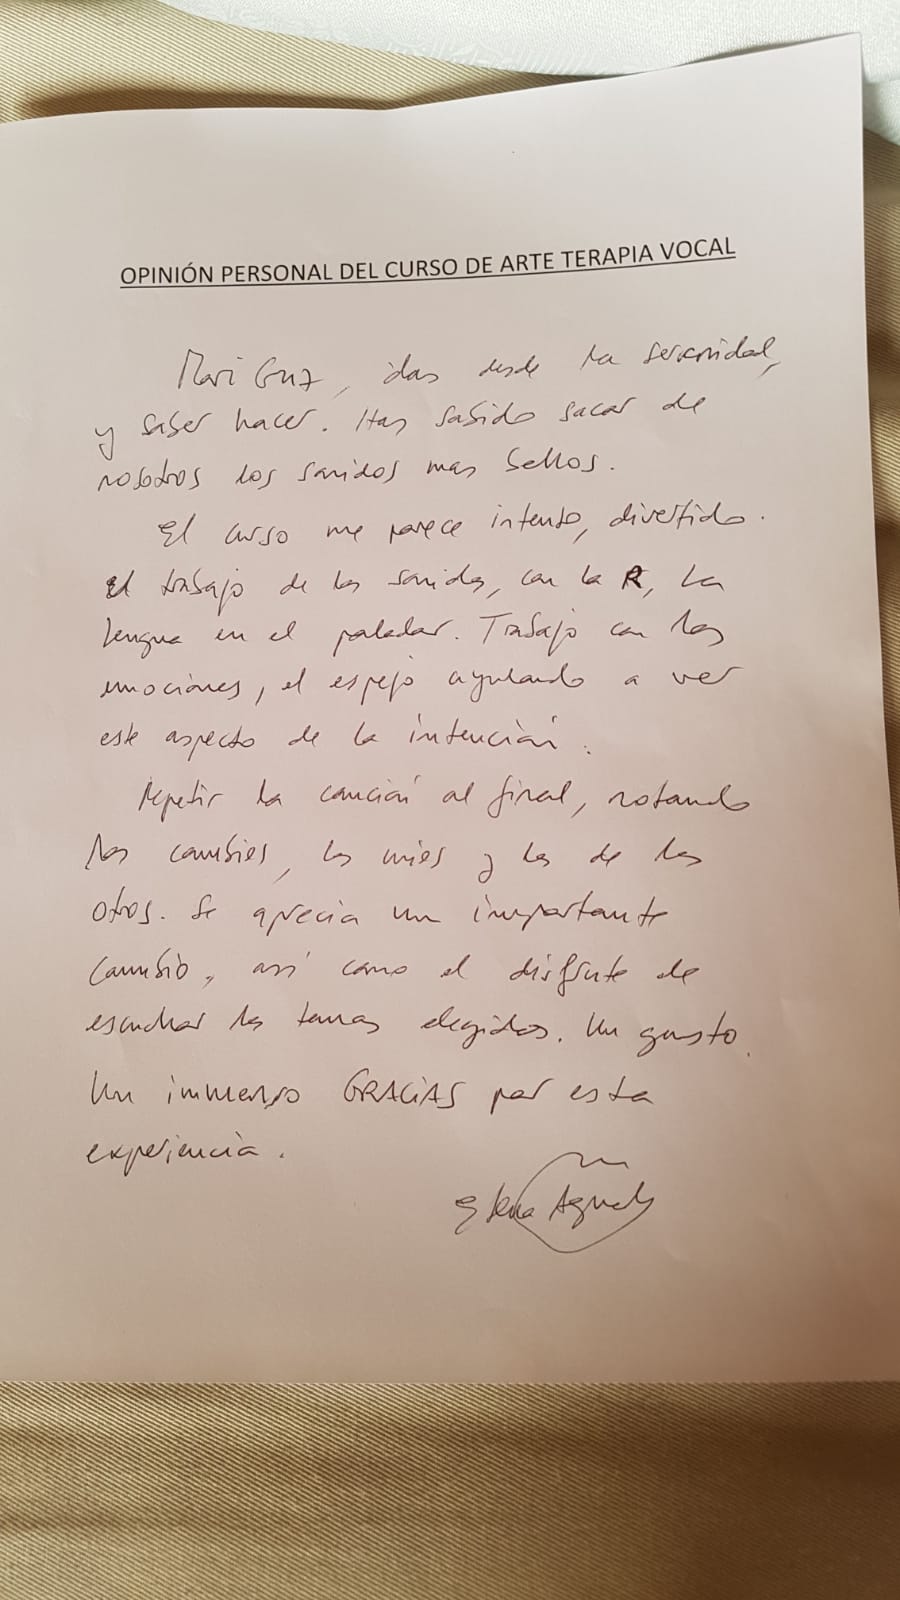 OPINIÓN PERSONAL DEL CURSO DE ARTE TERAPIA VOCAL
Mari Cruz, das desde la serenidad,
y saber hacer. Has sabido sacar de
nosotros los sonidos mas bellos.
El curso me parece intenso, divertido.
El trabajo de los sonidos, con la R, la
lengua en el paladar. Trabajo con las
emociones, el espejo ayudando a ver
este aspecto de la intención.
Repetir la canción al final, notando
los cambios, los míos y los de los
otros. Se aprecia un importante
cambio, así como el disfrute de
escuchar los temas elegidos. Un gusto.
Un inmenso GRACIAS por esta
experiencia.
Elena